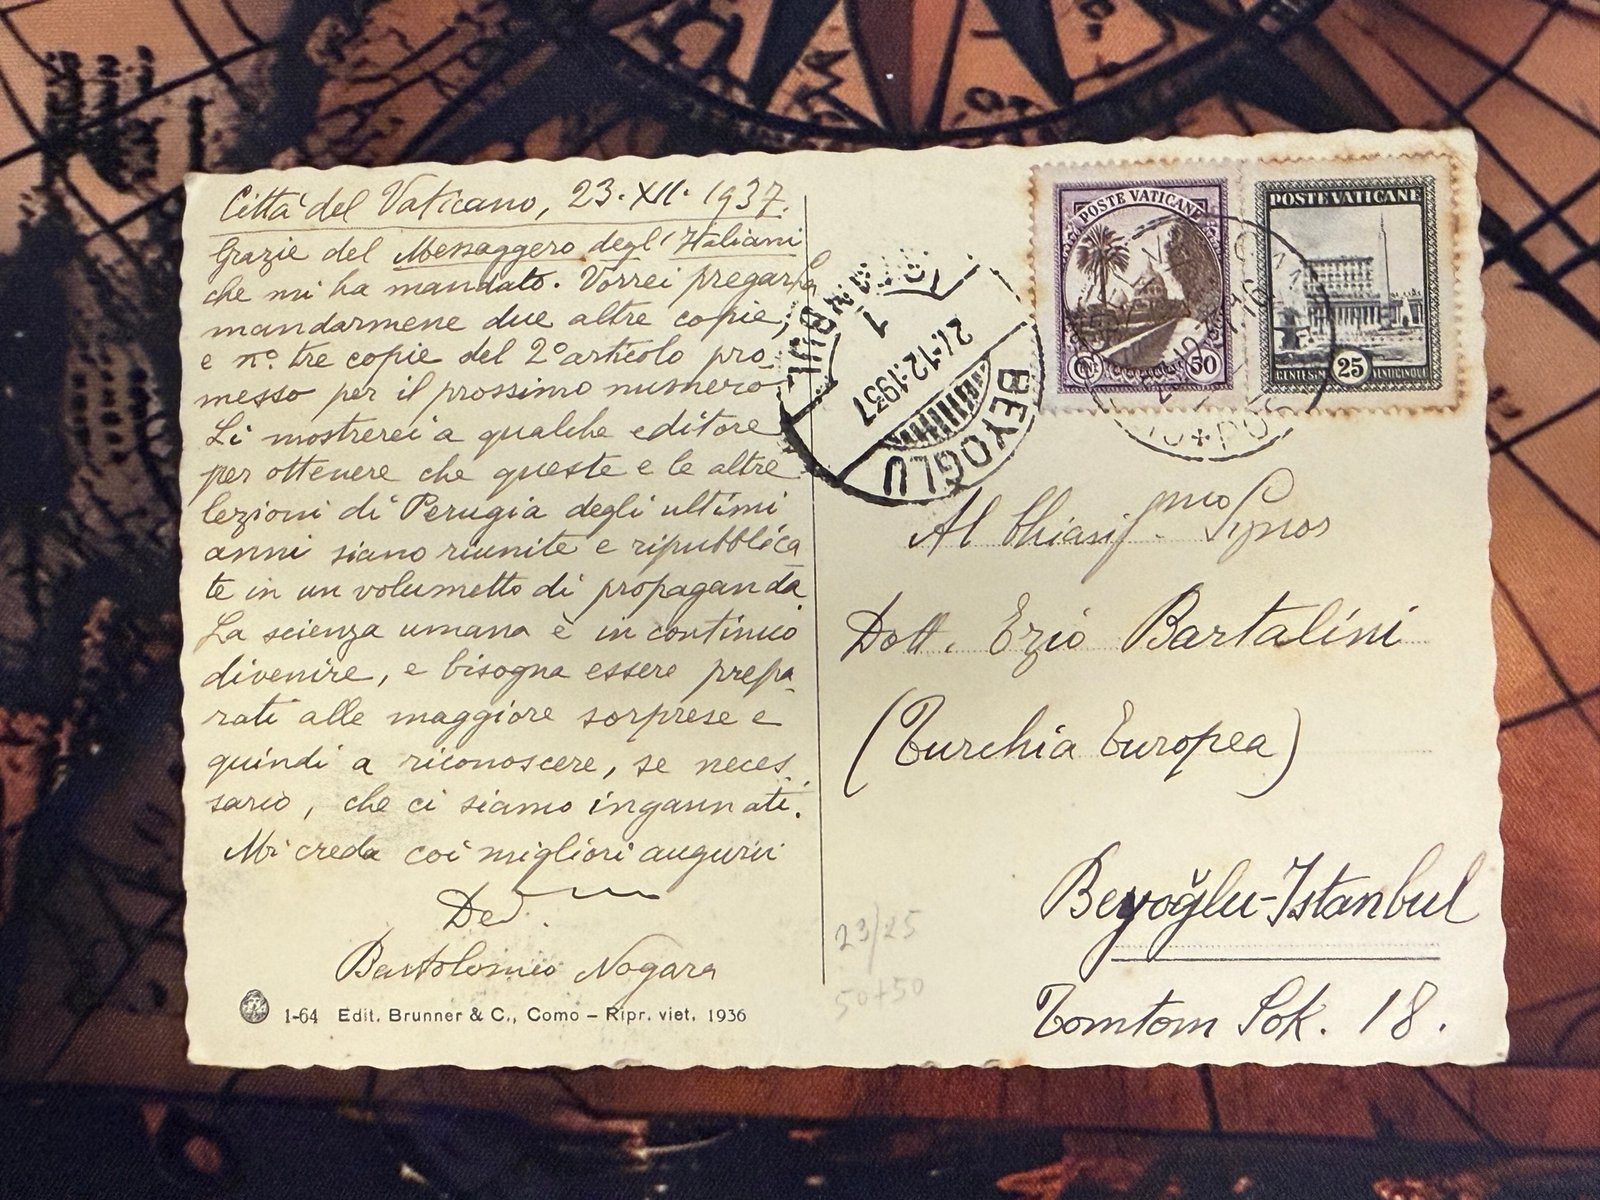 Città del Vaticano, 23.XII.1937.
Grazie del Messaggero degl'Italiani
che mi ha mandato. Vorrei pregarLa
mandarmene due altre copie,
e nº. tre copie del 2º articolo pro-
messo per il prossimo numero.
Li mostrerei a qualche editore
per ottenere che queste e le altre
lezioni di Perugia degli ultimi
anni siano riunite e ripubblica
te in un volumetto di propaganda.
La scienza umana è in continuo
divenire, e bisogna essere prepa-
rati alle maggiore sorprese e
quindi a riconoscere, se neces-
sario, che ci siamo ingannati.
Mi creda coi migliori auguri
Bartolomeo Nogara
1-64 Edit. Brunner & C., Como – Ripr. viet. 1936
POSTE VATICANE
50
POSTE VATICANE
25
ISTANBUL
1
27.12.1937
BEYOGLU
Al Chiasif.mo Signor
Dott. Ezio Bartalini
(Turchia Europea)
Beyoğlu-Istanbul
Tomtom Sok. 18.
23/25
50+50